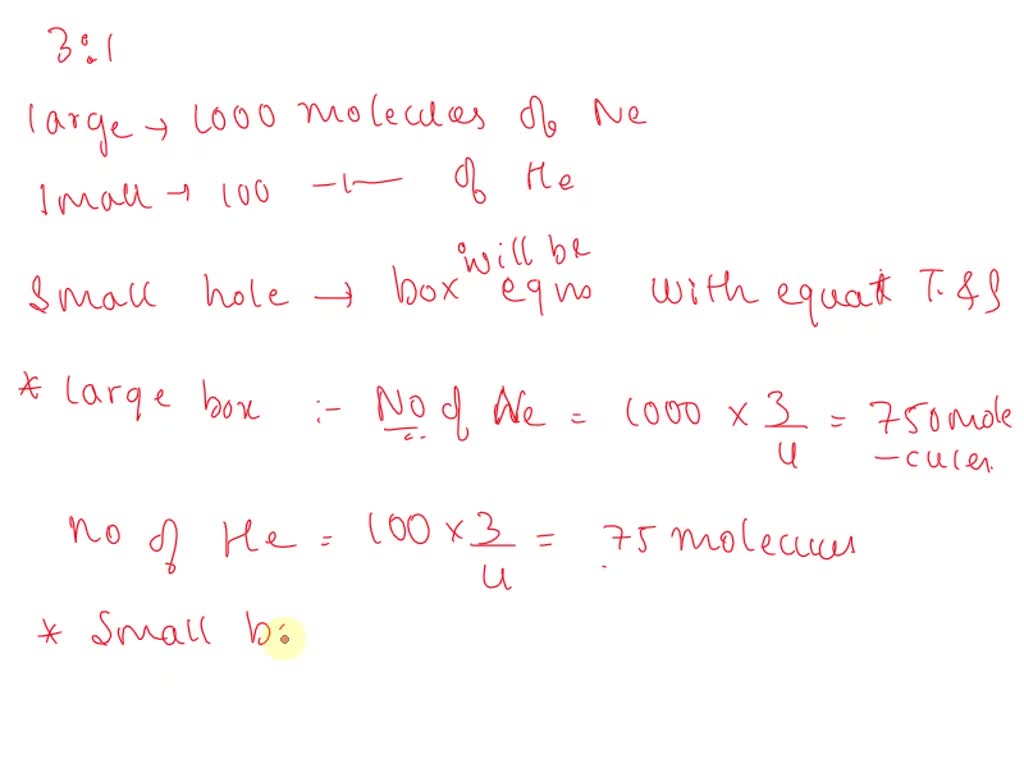 3:1
large → 1000 molecules of Ne
small → 100 -1- of He
will be
Small hole → box eqns with equal T. & S
* large box :- No of Ne = 1000 × 3/4 = 750 mole
-cules.
no of He = 100 × 3/4 = 75 molecules
* Small b